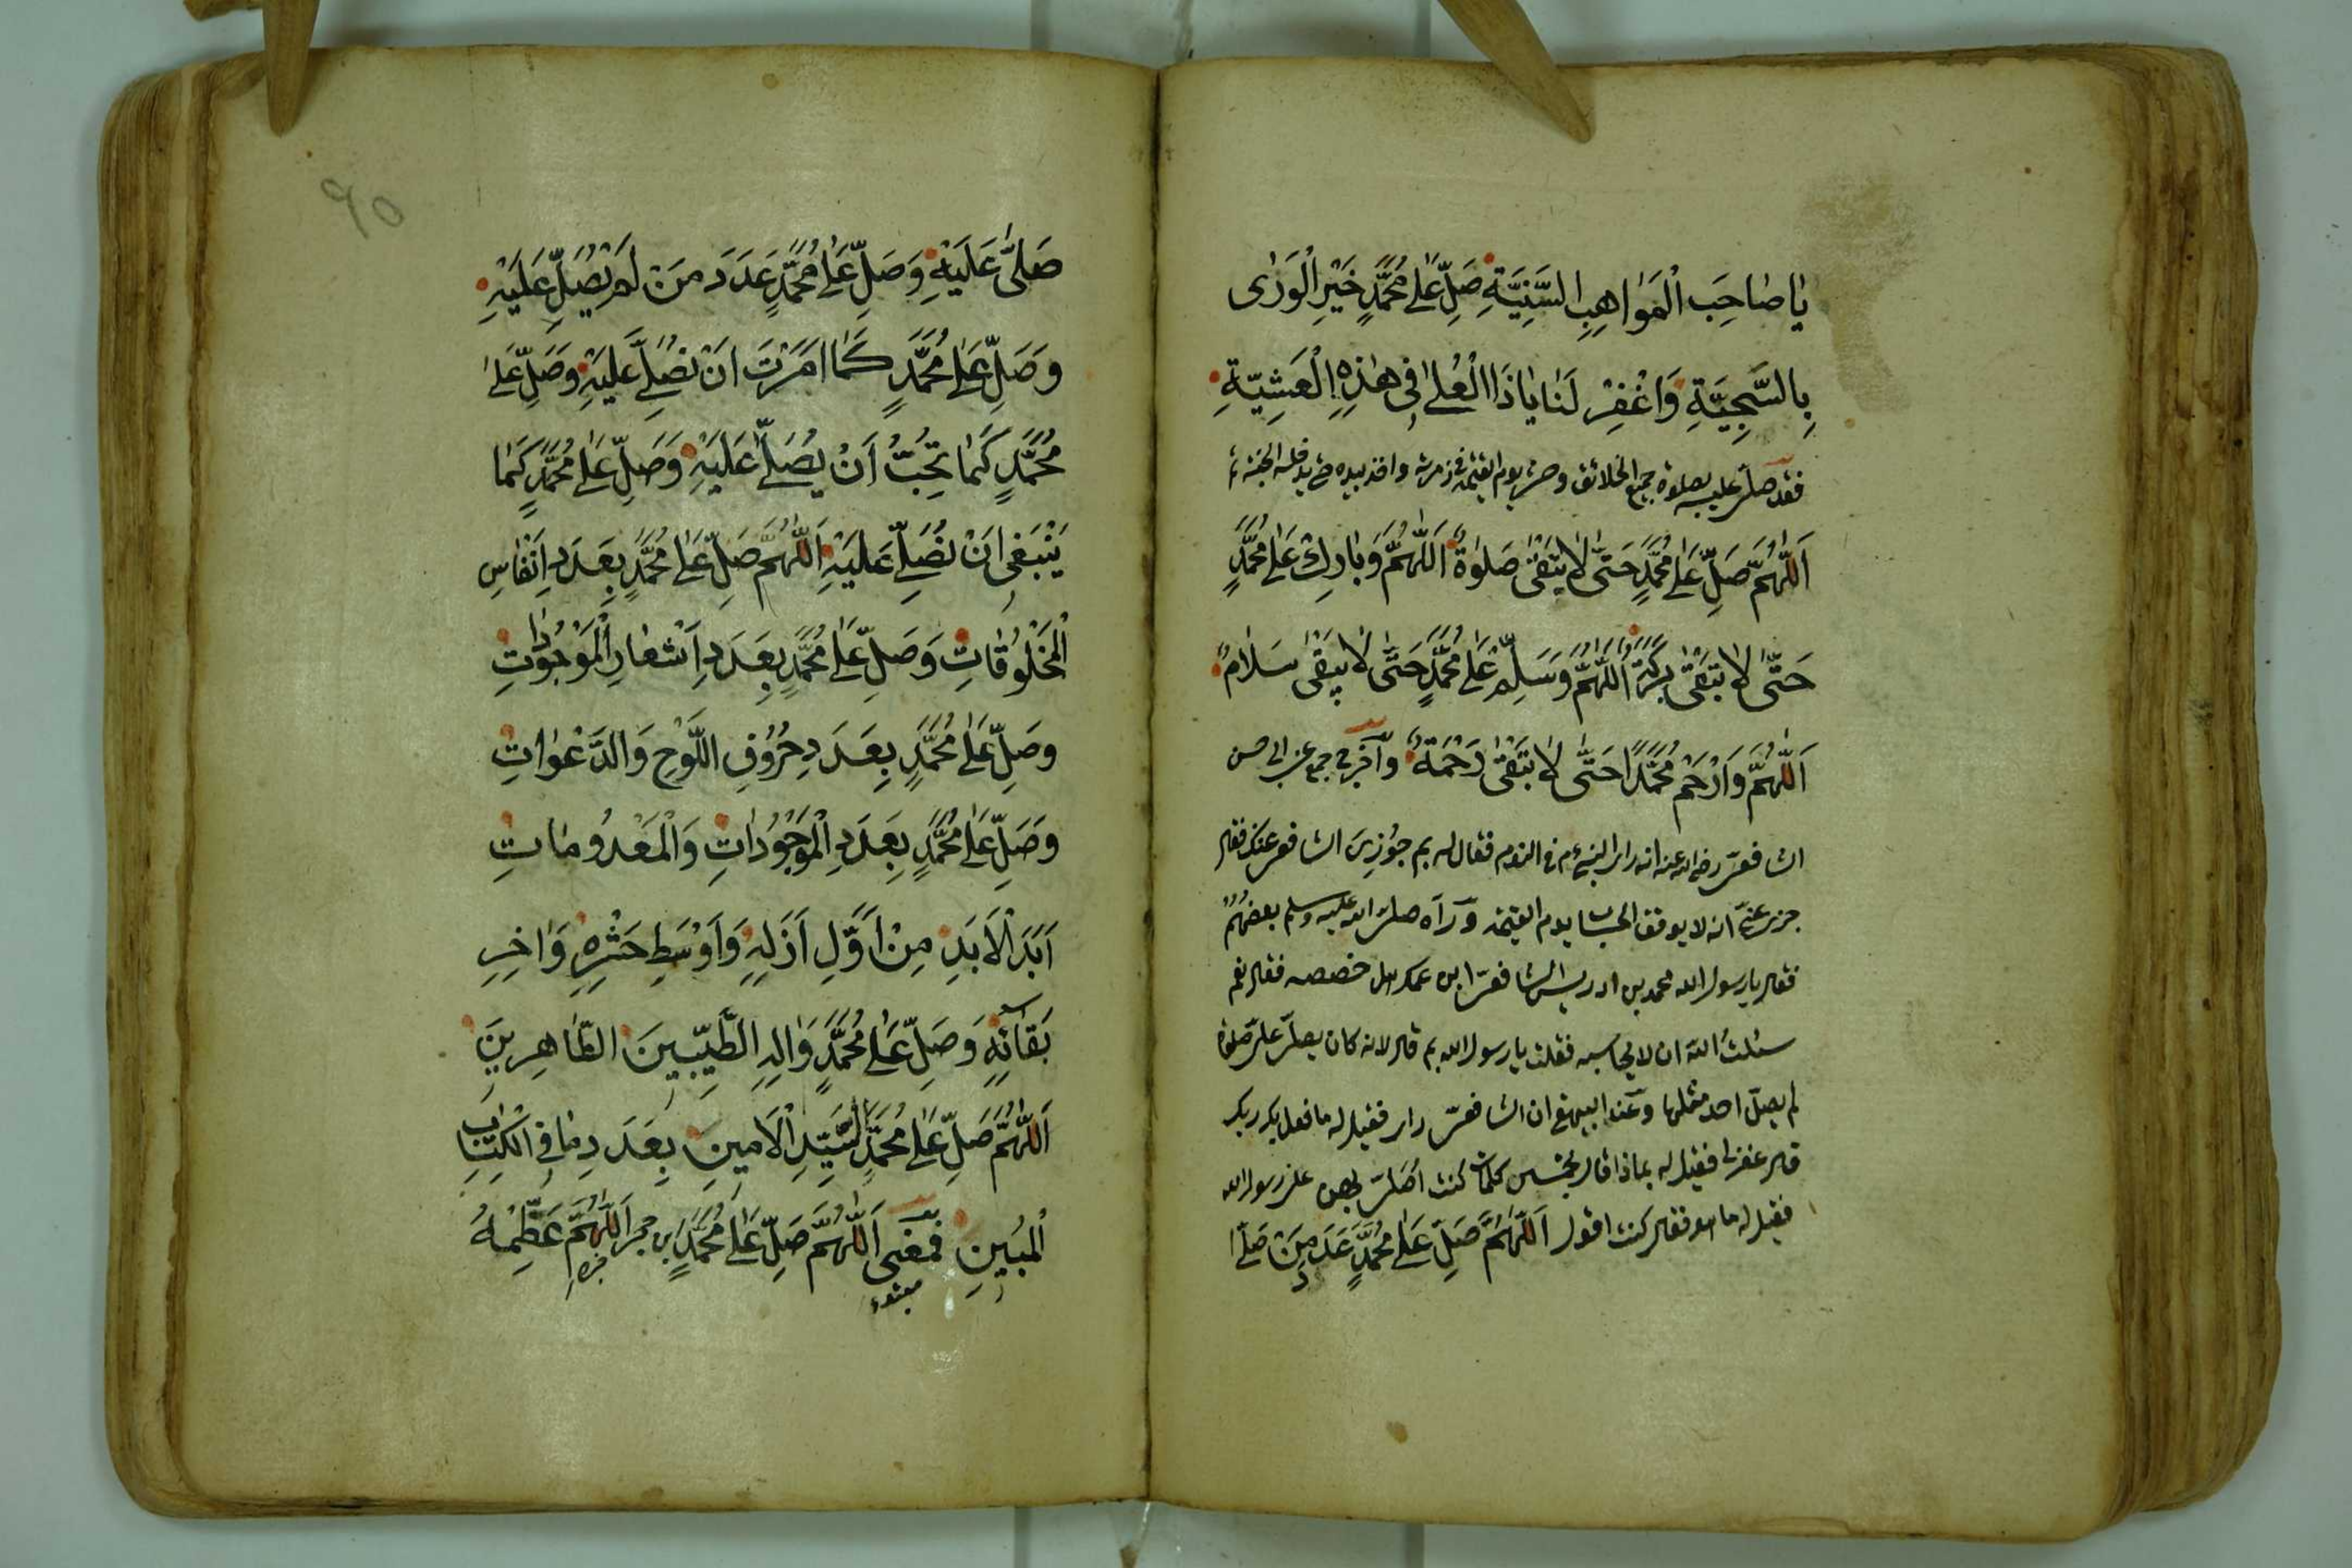 يَا صَاحِبَ الْمَوَاهِبِ السَّنِيَّةِ صَلِّ عَلَى مُحَمَّدٍ خَيْرِ الْوَرٰى
بِالسَّجِيَّةِ وَاغْفِرْ لَنَا يَا ذَا الْعُلٰى فِى هٰذِهِ الْعَشِيَّةِ
فقد صلى عليه بصلوة جميع الخلائق وحشر يوم القيمة فى زمرته واخذ بيده حتى يدخله الجنة
اَللّٰهُمَّ صَلِّ عَلٰى مُحَمَّدٍ حَتّٰى لَا يَبْقٰى صَلٰوةٌ اَللّٰهُمَّ وَبَارِكْ عَلٰى مُحَمَّدٍ
حَتّٰى لَا تَبْقٰى بَرَكَةٌ اَللّٰهُمَّ وَسَلِّمْ عَلٰى مُحَمَّدٍ حَتّٰى لَا يَبْقٰى سَلَامٌ
اَللّٰهُمَّ وَارْحَمْ مُحَمَّدًا حَتّٰى لَا تَبْقٰى رَحْمَةٌ وآخرج جمع عن ابى الحسن
الشافعى رضى الله عنه انه راى النبى عم فى النوم فقال له بم جوزى الشافعى عنك فقال
جزى عنى انه لا يوقف الحساب يوم القيمة ورآه صلى الله عليه وسلم بعضهم
فقال يا رسول الله محمد بن ادريس الشافعى ابن عمك هل خصصه فقال نعم
سئلت الله ان لا يحاسبه فقلت يا رسول الله بم قال لانه كان يصلى على صلوة
لم يصل احد مثلها وعند البيهقى ان الشافعى راى فقيل له ما فعل بك ربك
قال غفر لى فقيل له بماذا قال بخمس كلمات كنت اصلى بهن على رسول الله
فقيل له ما هو فقال كنت اقول اَللّٰهُمَّ صَلِّ عَلٰى مُحَمَّدٍ عَدَدَ مَنْ صَلّٰى
٩٥
صَلّٰى عَلَيْهِ وَصَلِّ عَلٰى مُحَمَّدٍ عَدَدَ مَنْ لَمْ يُصَلِّ عَلَيْهِ
وَصَلِّ عَلٰى مُحَمَّدٍ كَمَا اَمَرْتَ اَنْ نُصَلِّىَ عَلَيْهِ وَصَلِّ عَلٰى
مُحَمَّدٍ كَمَا تُحِبُّ اَنْ يُصَلّٰى عَلَيْهِ وَصَلِّ عَلٰى مُحَمَّدٍ كَمَا
يَنْبَغِى اَنْ نُصَلِّىَ عَلَيْهِ اَللّٰهُمَّ صَلِّ عَلٰى مُحَمَّدٍ بِعَدَدِ اَنْفَاسِ
الْمَخْلُوقَاتِ وَصَلِّ عَلٰى مُحَمَّدٍ بِعَدَدِ اَشْعَارِ الْمَوْجُودَاتِ
وَصَلِّ عَلٰى مُحَمَّدٍ بِعَدَدِ حُرُوفِ اللَّوْحِ وَالدَّعَوَاتِ
وَصَلِّ عَلٰى مُحَمَّدٍ بِعَدَدِ الْمَوْجُودَاتِ وَالْمَعْدُومَاتِ
اَبَدَ الْاَبَدِ مِنْ اَوَّلِ اَزَلِهِ وَاَوْسَطِ حَشْرِهِ وَاٰخِرِ
بَقَائِهِ وَصَلِّ عَلٰى مُحَمَّدٍ وَاٰلِهِ الطَّيِّبِينَ الطَّاهِرِينَ
اَللّٰهُمَّ صَلِّ عَلٰى مُحَمَّدٍ السَّيِّدِ الْاَمِينِ بِعَدَدِ مَا فِى الْكِتَابِ
الْمُبِينِ فَمَعْنٰى اَللّٰهُمَّ صَلِّ عَلٰى مُحَمَّدٍ ابن حجر اَللّٰهُمَّ عَظِّمْهُ